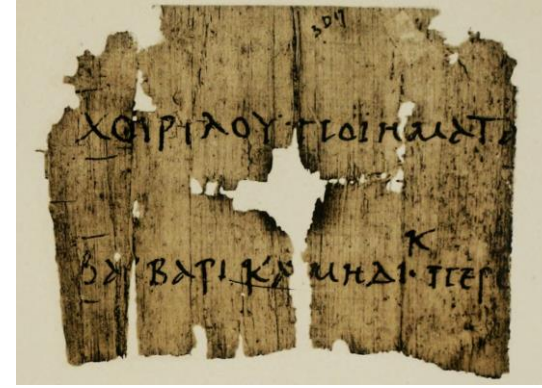 ΧΟΙΡΙΛΟΥ ΠΟΙΗΜΑΤΑ
ΒΑΡΒΑΡΙΚΑ ΜΗΔΙΚ· ΠΕΡΣ